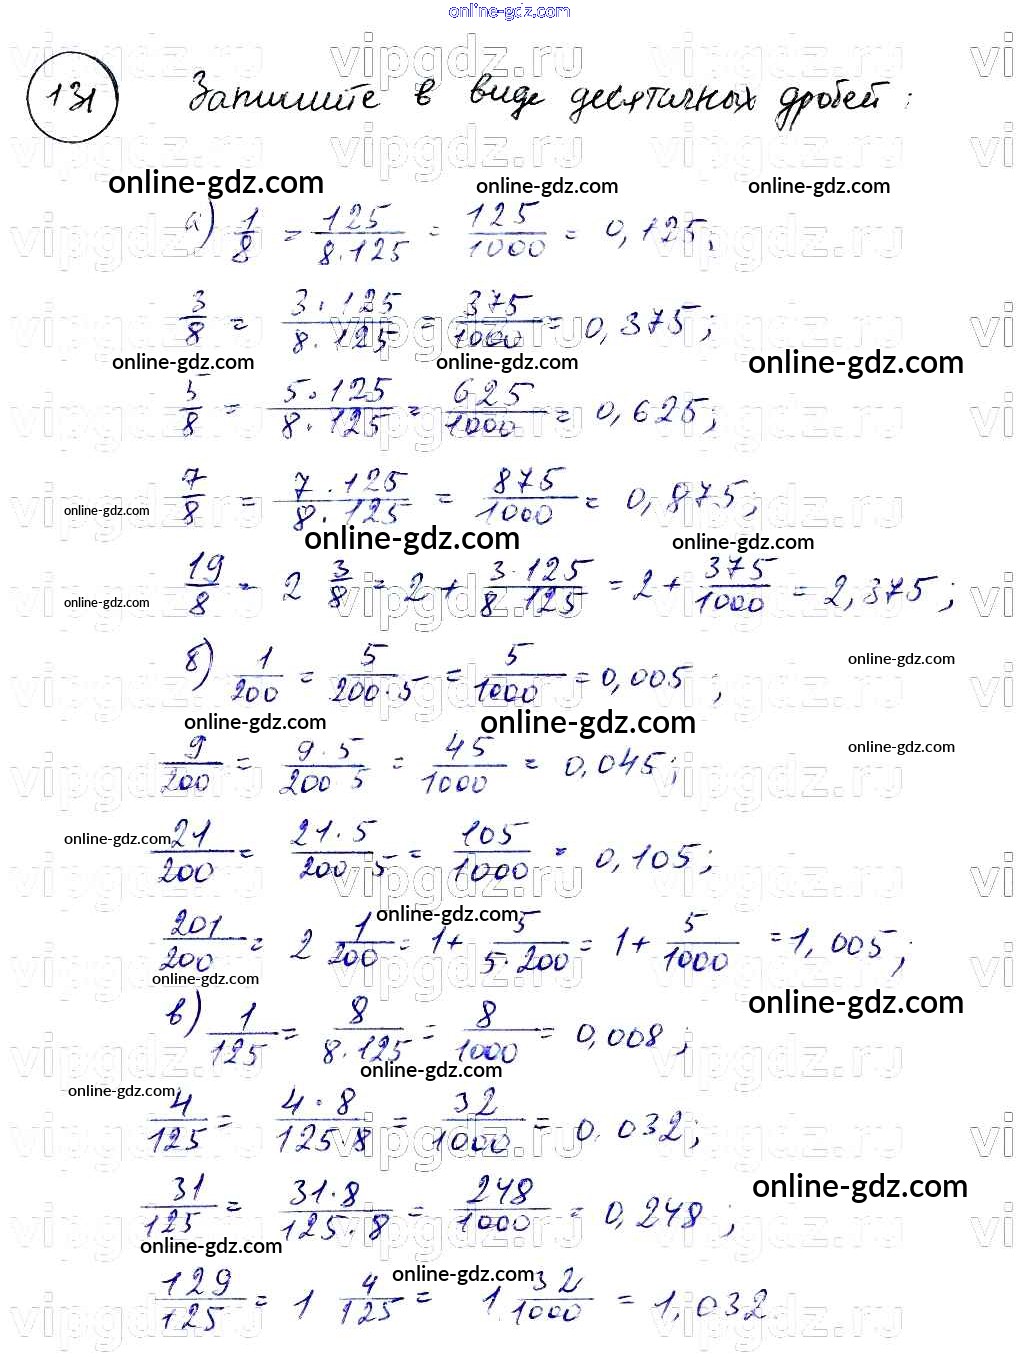 online-gdz.com
131 Запишите в виде десятичных дробей:
а) 1/8 = 125/8·125 = 125/1000 = 0,125;
3/8 = 3·125/8·125 = 375/1000 = 0,375;
5/8 = 5·125/8·125 = 625/1000 = 0,625;
7/8 = 7·125/8·125 = 875/1000 = 0,875;
19/8 = 2 3/8 = 2 + 3·125/8 125 = 2 + 375/1000 = 2,375;
б) 1/200 = 5/200·5 = 5/1000 = 0,005;
9/200 = 9·5/200 5 = 45/1000 = 0,045;
21/200 = 21·5/200 5 = 105/1000 = 0,105;
201/200 = 2 1/200 = 1 + 5/5·200 = 1 + 5/1000 = 1,005;
в) 1/125 = 8/8·125 = 8/1000 = 0,008;
4/125 = 4·8/125·8 = 32/1000 = 0,032;
31/125 = 31·8/125·8 = 248/1000 = 0,248;
129/125 = 1 4/125 = 1 32/1000 = 1,032